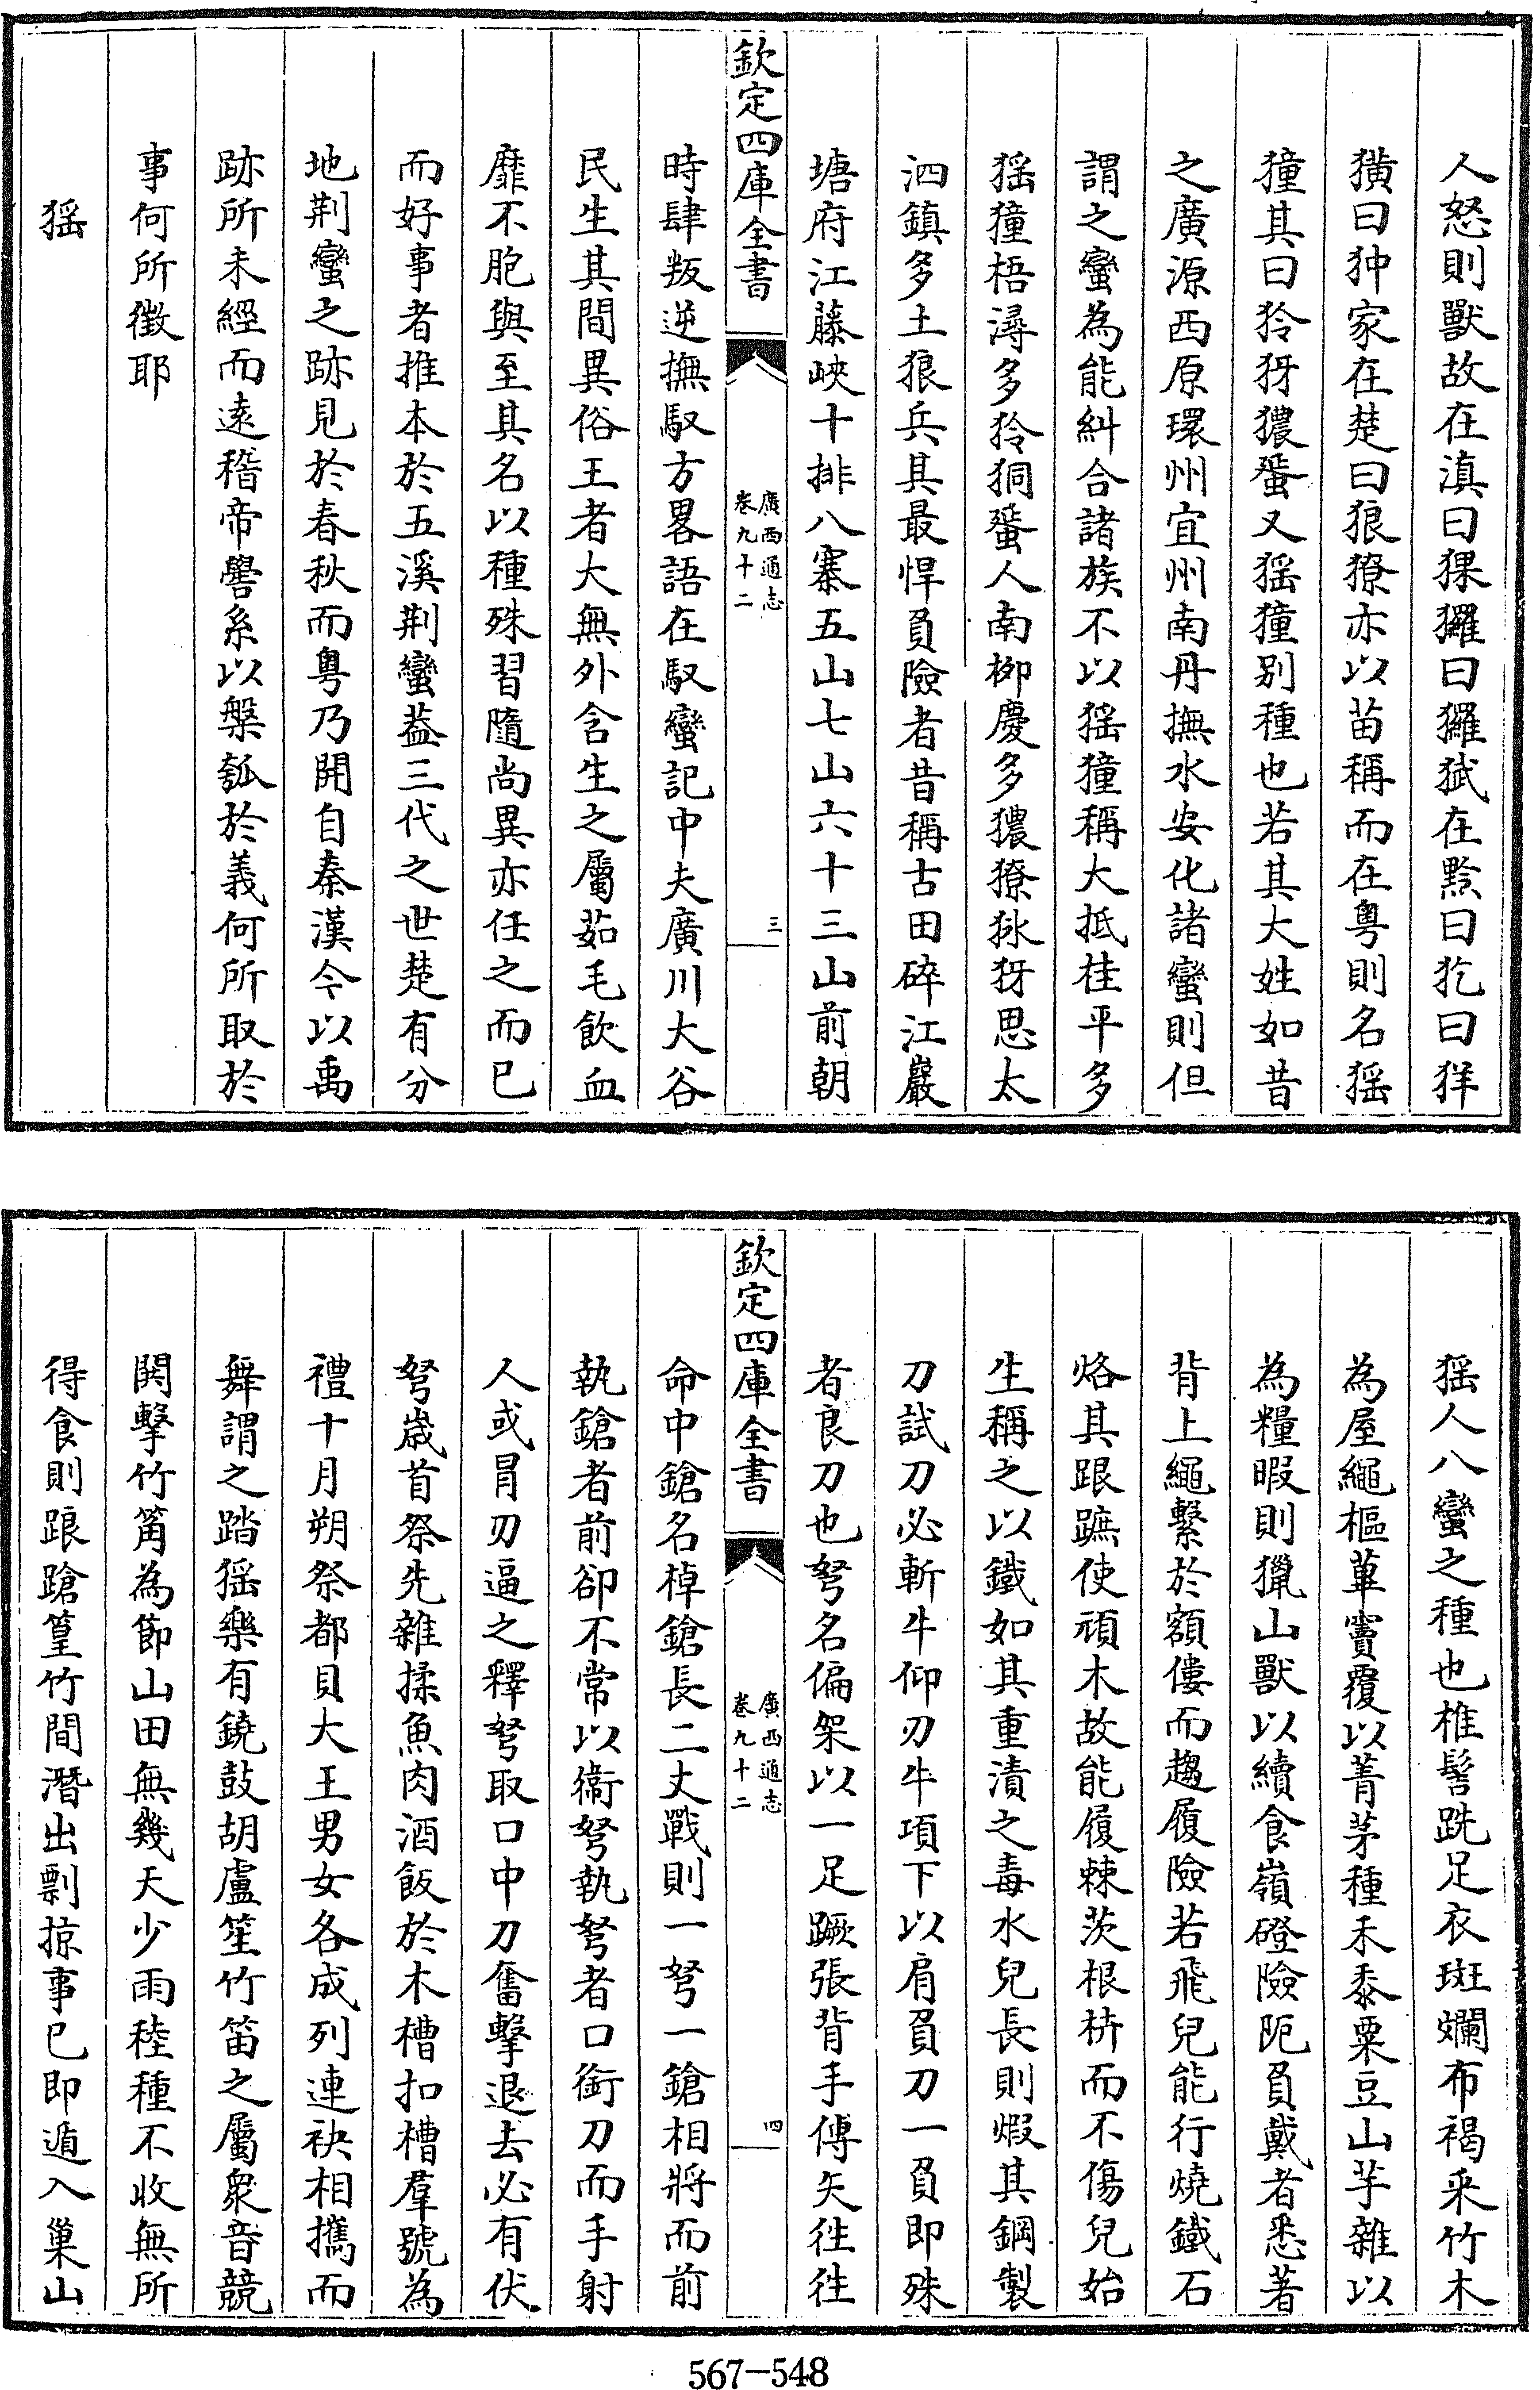 人怒則獸故在滇曰猓玀曰玀狖在黔曰犵曰𤞑
獚曰狆家在楚曰狼獠亦以苗稱而在粵則名猺
獞其曰狑犽獽蜑又猺獞別種也若其大姓如昔
之廣源西原環州宜州南丹撫水安化諸蠻則但
謂之蠻為能糾合諸族不以猺獞稱大抵桂平多
猺獞梧潯多狑狪蜑人南柳慶多獽獠㹪犽思太
泗鎮多土狼兵其最悍負險者昔稱古田碎江巖
塘府江藤峽十排八寨五山七山六十三山前朝
欽定四庫全書
廣西通志
卷九十二
三
時肆叛逆撫馭方畧語在馭蠻記中夫廣川大谷
民生其間異俗王者大無外含生之屬茹毛飲血
靡不胞與至其名以種殊習隨尚異亦任之而已
而好事者推本於五溪荆蠻葢三代之世楚有分
地荆蠻之跡見於春秋而粵乃開自秦漢今以禹
跡所未經而遠稽帝嚳系以槃瓠於義何所取於
事何所徵耶
猺
猺人八蠻之種也椎髻跣足衣斑斕布褐采竹木
為屋繩樞蓽竇覆以菁茅種禾黍粟豆山芋雜以
為糧暇則獵山獸以續食嶺磴險阨負戴者悉著
背上繩繫於額僂而趨履險若飛兒能行燒鐵石
烙其跟蹠使頑木故能履棘茨根枿而不傷兒始
生稱之以鐵如其重漬之毒水兒長則煆其鋼製
刀試刀必斬牛牛仰刃牛項下以肩負刀一負即殊
者良刀也弩名偏架以一足蹶張背手傅矢徃徃
欽定四庫全書
廣西通志
卷九十二
四
命中鎗名棹鎗長二丈戰則一弩一鎗相將而前
執鎗者前卻不常以衞弩執弩者口銜刀而手射
人或冒刃逼之釋弩取口中刀奮擊退去必有伏
弩歲首祭先雜揉魚肉酒飯於木槽扣槽羣號為
禮十月朔祭都貝大王男女各成列連袂相攜而
舞謂之踏猺樂有鐃鼓胡盧笙竹笛之屬衆音競
閧擊竹筩為節山田無幾天少雨稑種不收無所
得食則踉蹌篁竹間潛出剽掠事已即遁入巢山
567-548